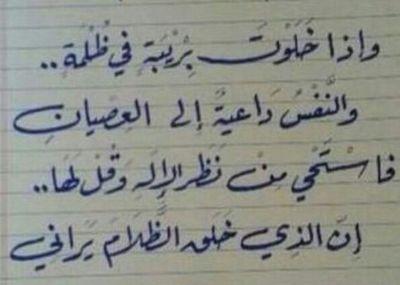 وإذا خَلَوْتَ بِرِيْبَةٍ في ظُلْمَةٍ..
والنَّفْسُ دَاعيةٌ إلى العِصْيانِ
فاسْتَحْيِ مِنْ نَظَرِ الإلَهِ وَقُلْ لهَا..
إنَ الذِي خَلَقَ الظَّلامَ يَراني